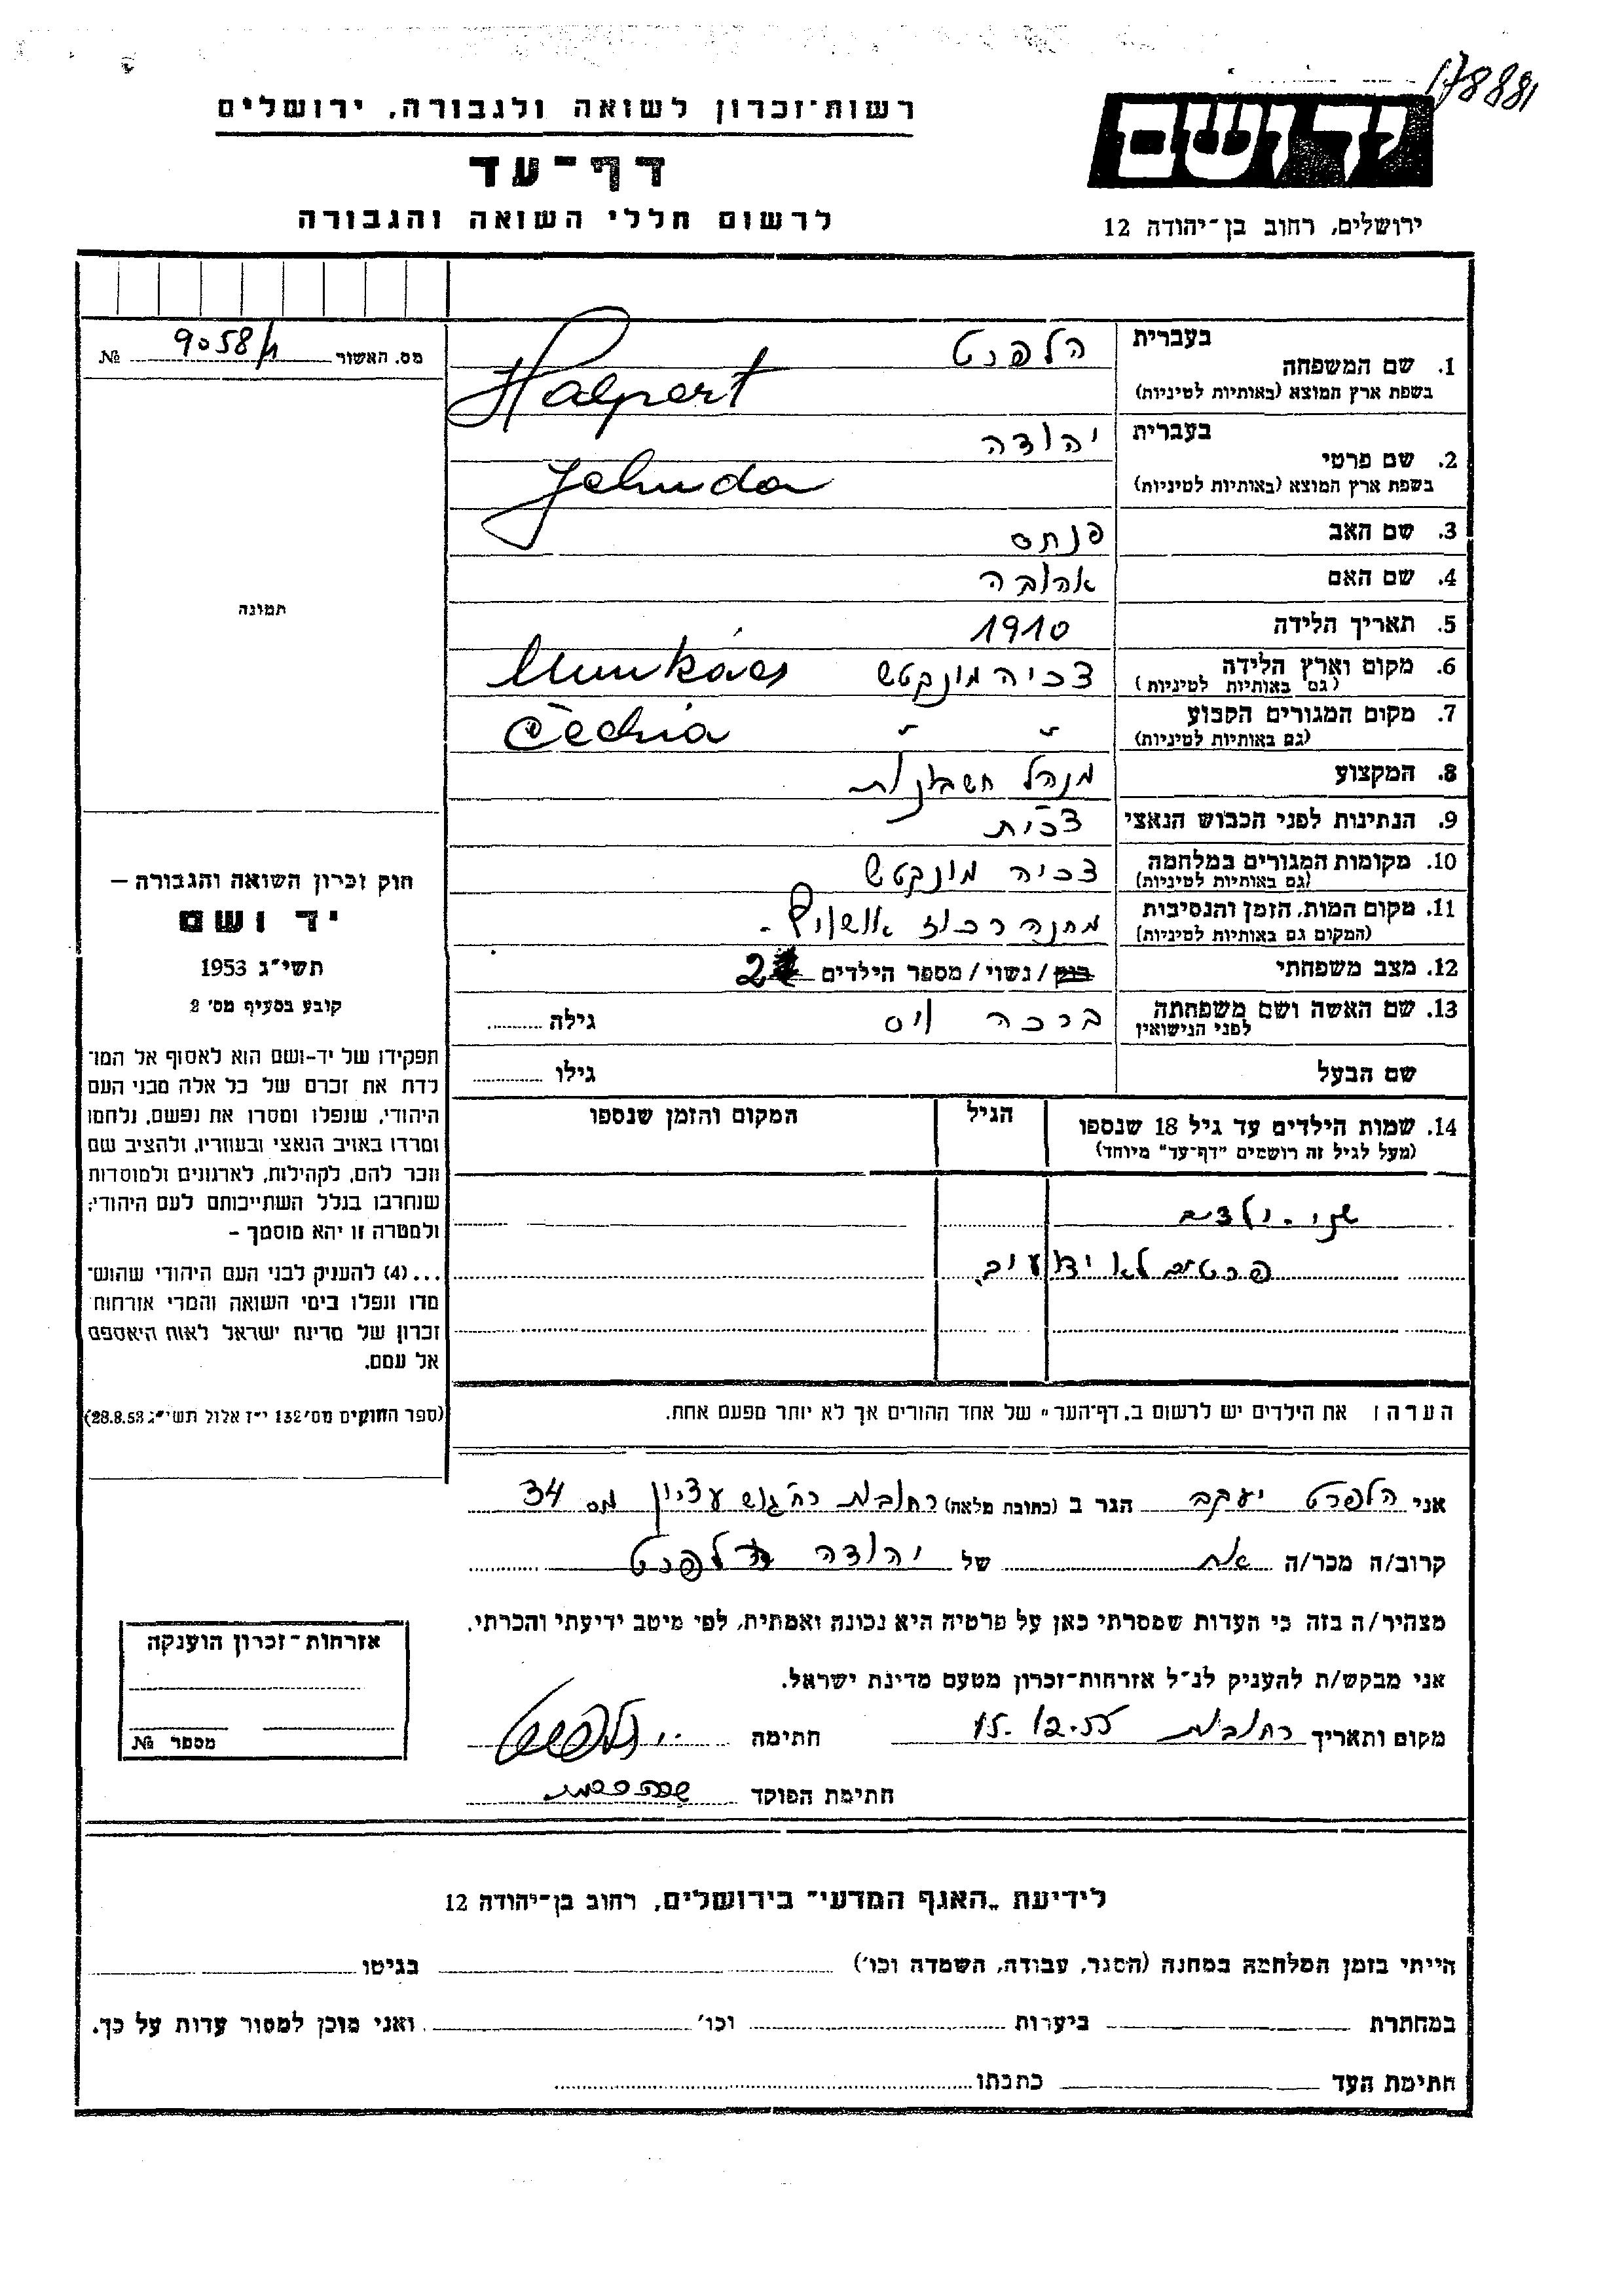 178881
רשות־זכרון לשואה ולגבורה, ירושלים
דף־עד
לרשום חללי השואה והגבורה
יד ושם
ירושלים, רחוב בן־יהודה 12
מס. האשור 9058/ №
תמונה
חוק זכרון השואה והגבורה —
יד ושם
תשי״ג 1953
קובע בסעיף מס׳ 2
תפקידו של יד-ושם הוא לאסוף אל המו־
לדת את זכרם של כל אלה מבני העם
היהודי, שנפלו ומסרו את נפשם, נלחמו
ומרדו באויב הנאצי ובעוזריו, ולהציב שם
וזכר להם, לקהילות, לארגונים ולמוסדות
שנחרבו בגלל השתייכותם לעם היהודי;
ולמטרה זו יהא מוסמך —
...(4) להעניק לבני העם היהודי שהוש־
מדו ונפלו בימי השואה והמרי אזרחות־
זכרון של מדינת ישראל לאות היאספם
אל עמם.
(ספר החוקים מס׳ 132 י״ז אלול תשי״ג 28.8.53)
בעברית הלפרט
1. שם המשפחה
בשפת ארץ המוצא (באותיות לטיניות) Halpert
בעברית יהודה
2. שם פרטי
בשפת ארץ המוצא (באותיות לטיניות) Jehuda
3. שם האב פנחס
4. שם האם אהובה
5. תאריך הלידה 1910
6. מקום וארץ הלידה צכיה מונקטש Munkács
(גם באותיות לטיניות)
7. מקום המגורים הקבוע " " Čechia
(גם באותיות לטיניות)
8. המקצוע מנהל חשבונות
9. הנתינות לפני הכבוש הנאצי צכית
10. מקומות המגורים במלחמה צכיה מונקטש
(גם באותיות לטיניות)
11. מקום המות, הזמן והנסיבות מחנה רכוז אושויץ -
(המקום גם באותיות לטיניות)
12. מצב משפחתי רווק / נשוי / מספר הילדים 2
13. שם האשה ושם משפחתה ברכה וייס גילה
לפני הנישואין
שם הבעל גילו
14. שמות הילדים עד גיל 18 שנספו הגיל המקום והזמן שנספו
(מעל לגיל זה רושמים "דף־עד" מיוחד)
שני ילדים
פרטים לא ידועים
הערה: את הילדים יש לרשום ב„דף־העד" של אחד ההורים אך לא יותר מפעם אחת.
אני הלפרט יעקב הגר ב (כתובת מלאה) רחובות רח׳ גוש עציון מס 34
קרוב/ה מכר/ה אח של יהודה הלפרט
מצהיר/ה בזה כי העדות שמסרתי כאן על פרטיה היא נכונה ואמתית, לפי מיטב ידיעתי והכרתי.
אני מבקש/ת להעניק לנ״ל אזרחות־זכרון מטעם מדינת ישראל.
מקום ותאריך רחובות 15.12.55 חתימה י. הלפרט
חתימת הפוקד
אזרחות־זכרון הוענקה
מספר №
לידיעת „האגף המדעי" בירושלים, רחוב בן־יהודה 12
הייתי בזמן המלחמה במחנה (הסגר, עבודה, השמדה וכו׳) בגיטו
במחתרת ביערות וכו׳ ואני מוכן למסור עדות על כך.
חתימת העד כתבתו